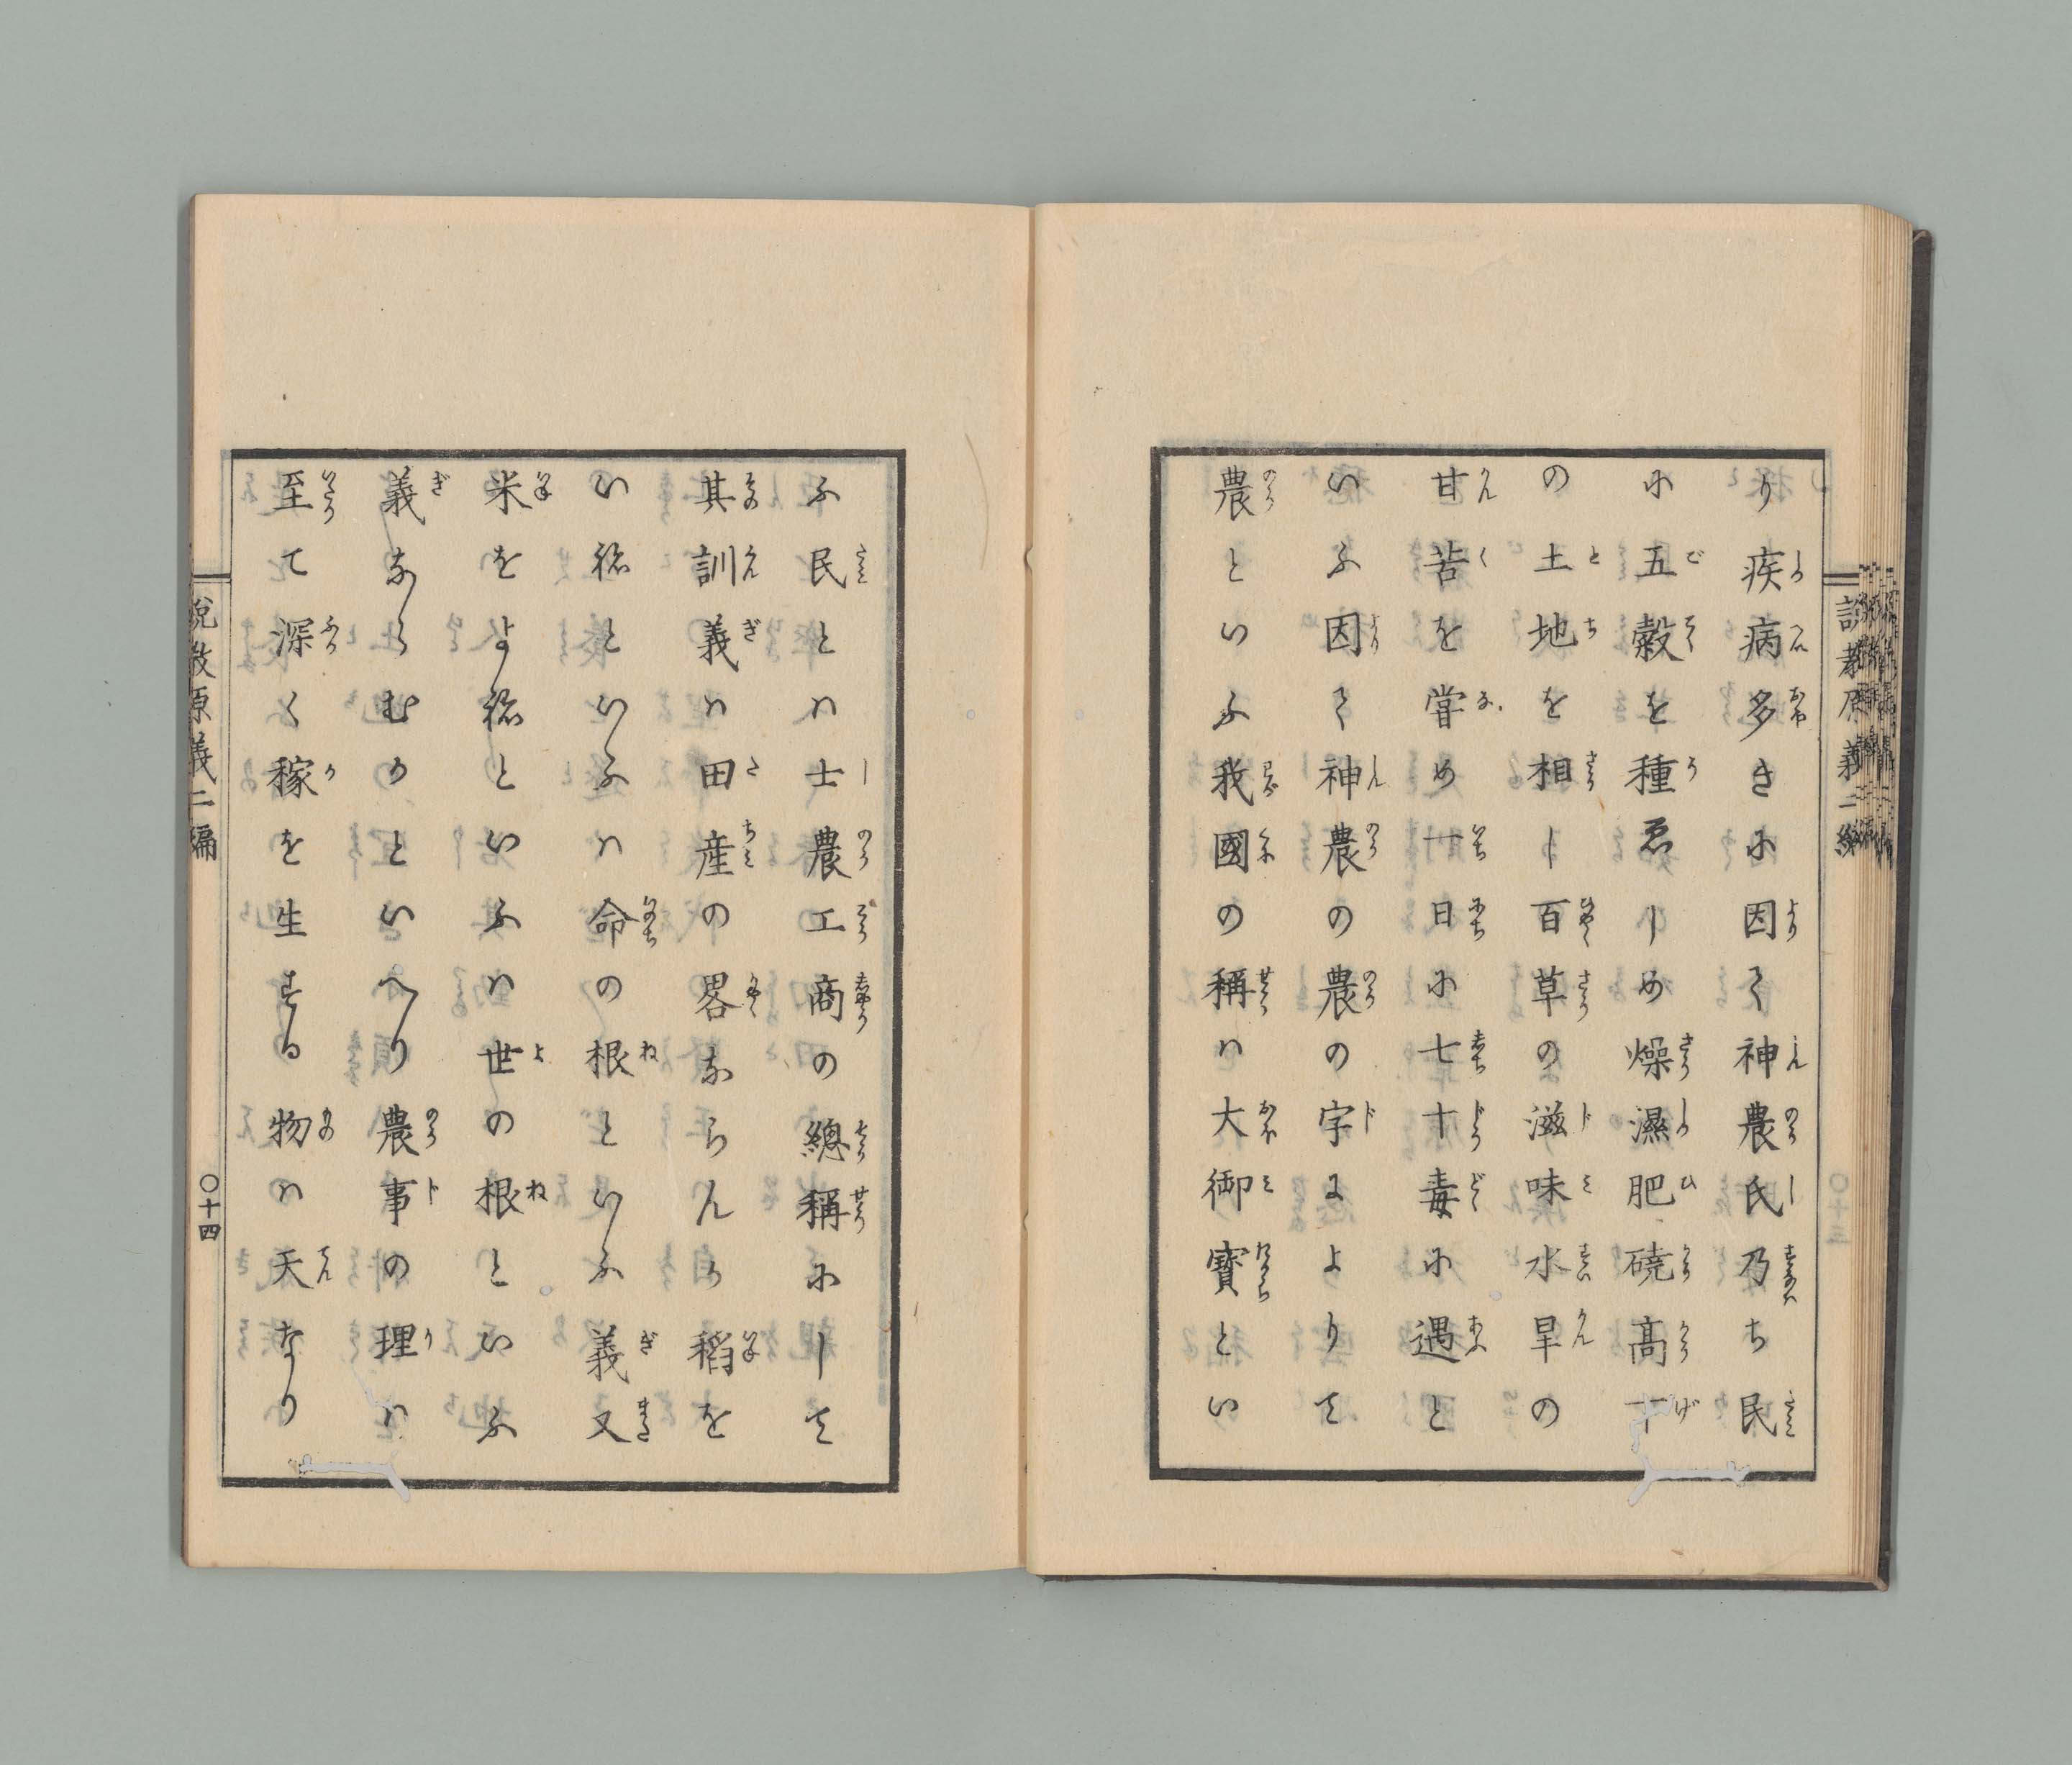 り疾病多きに因て神農氏乃ち民
に五穀を種ゑしめ燥濕肥磽高下
の土地を相し百草の滋味水旱の
甘苦を甞め一日に七十毒に遇と
いふ因て神農の農の字によりて
農といふ我國の稱は大御寶とい
ふ民とは士農工商の總稱にして
其訓義は田産の畧ならんか稻を
い祢といふは命の根といふ義又
米をよ祢といふは世の根といふ
義ならむかといへり農事の理は
至て深く稼を生する物は天なり
説敎原義二編
○十四